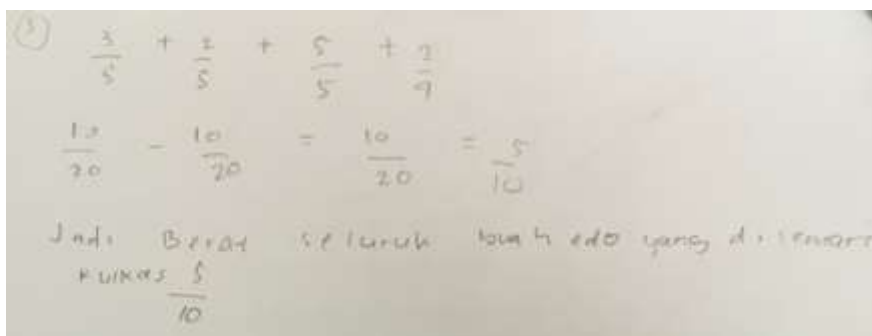 3
3/5 + 2/5 + 5/5 + 2/9
10/20 - 10/20 = 10/20 = 5/10
Jadi Berat seluruh buah edo yang di
kulkas 5/10